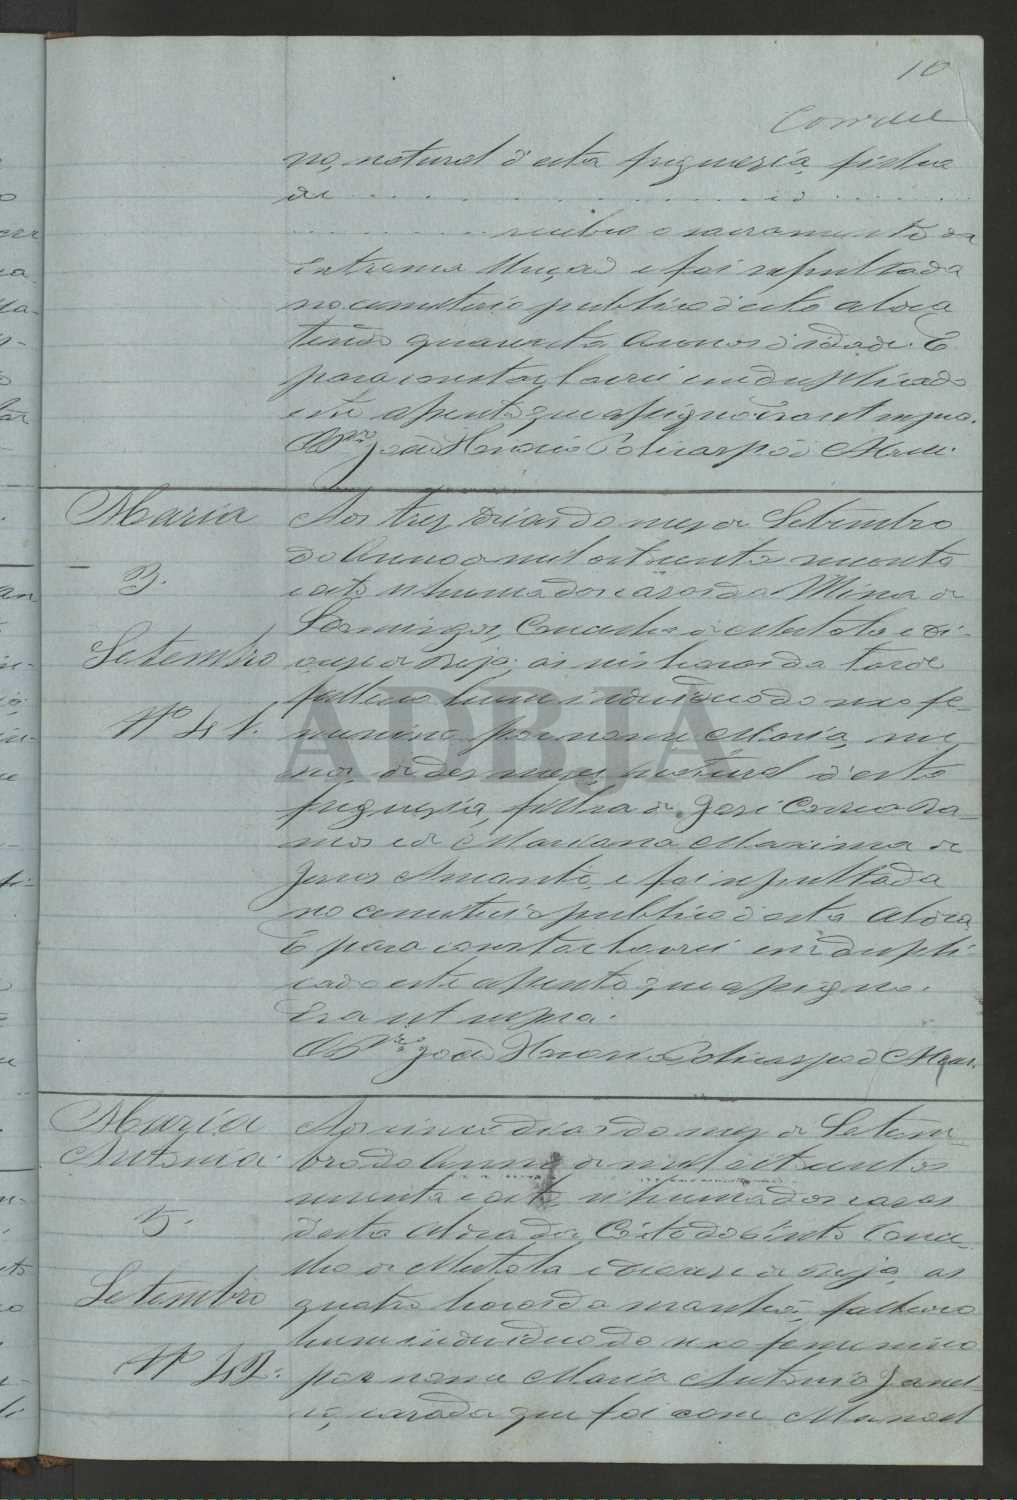 10
no, natural d'esta freguezia, filha
de
recebeo o sacramento da
Extrema Unção e foi sepultada
no cemiterio publico d'esta aldeia
tendo quarenta Annos d'idade. E
para constar lavrei em duplicado
este assento que assigno Era ut supra.
João Honorio Policarpo d'
Maria
Aos trez dias do mez de Setembro
do Anno de mil oitocentos noventa
e oito n'huma das casas da Mina de
3.
S. Domingos, Concelho de Mertola e Di-
Setembro
ocese de Beja, ás seis horas da tarde
falleceo hum individuo do sexo fe-
Nº 41.
menino por nome Maria, me-
nor de dez mezes, natural d'esta
freguezia, filha de José Correia Ra-
mos e de Mariana Maxima de
Jesus Amante, e foi sepultada
no cemiterio publico d'esta aldeia
E para constar lavrei em dupli-
cado este assento que assigno.
Era ut supra.
João Honorio Policarpo d'
Maria
Antonia
Aos cinco dias do mez de Setem-
bro do Anno de mil oitocentos
noventa e oito n'huma das casas
5.
desta Aldea da Corte do Pinto Conce-
lho de Mertola e Diocese de Beja, as
Setembro
quatro horas da manhã, falleceo
hum individuo do sexo femenino
Nº 42.
por nome Maria Antonia
casada que foi com Manoel
ADBJA